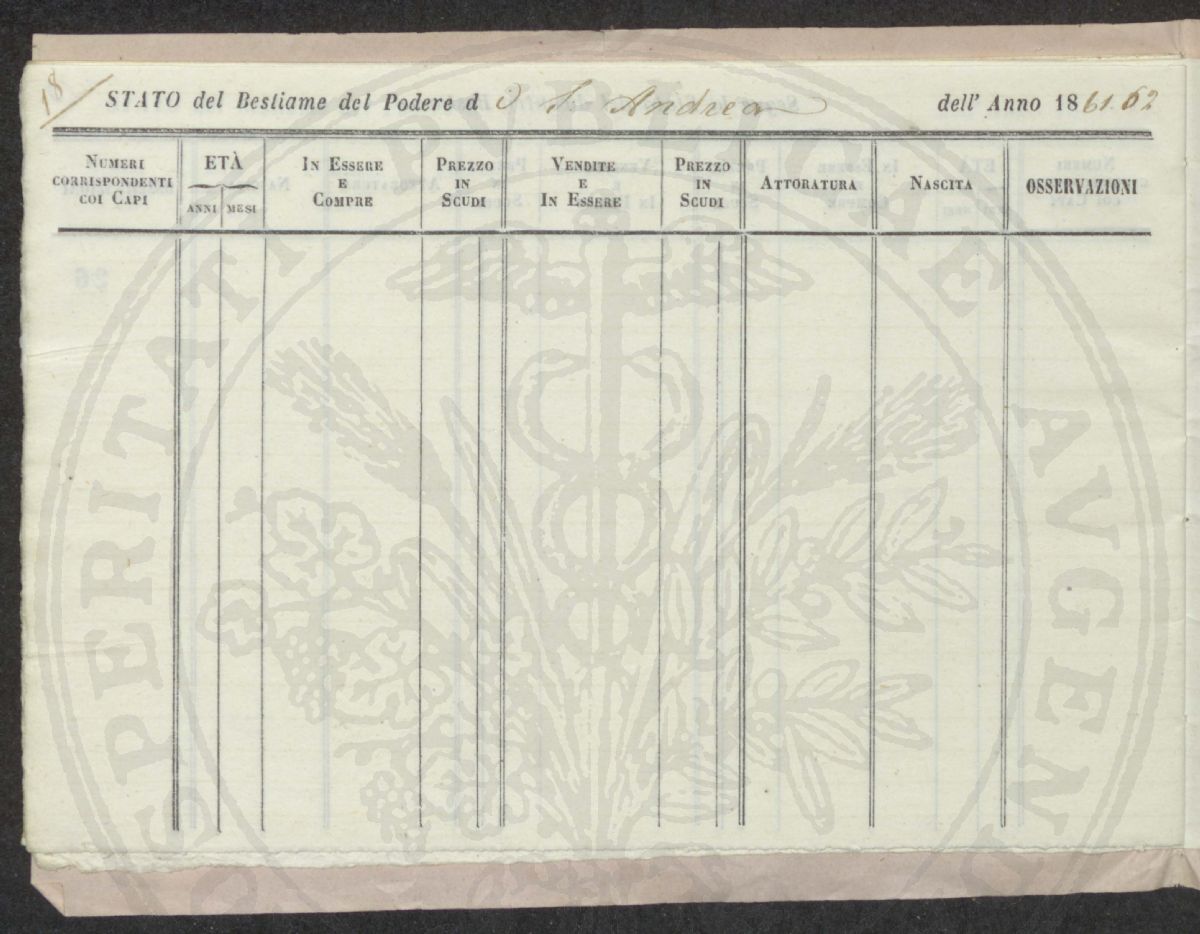 18
STATO del Bestiame del Podere d i S. Andrea dell' Anno 1861.62
NUMERI CORRISPONDENTI COI CAPI
ETÀ
ANNI MESI
IN ESSERE E COMPRE
PREZZO IN SCUDI
VENDITE E IN ESSERE
PREZZO IN SCUDI
ATTORATURA
NASCITA
OSSERVAZIONI
26
SPERITATI PVBLICAE AVGEN